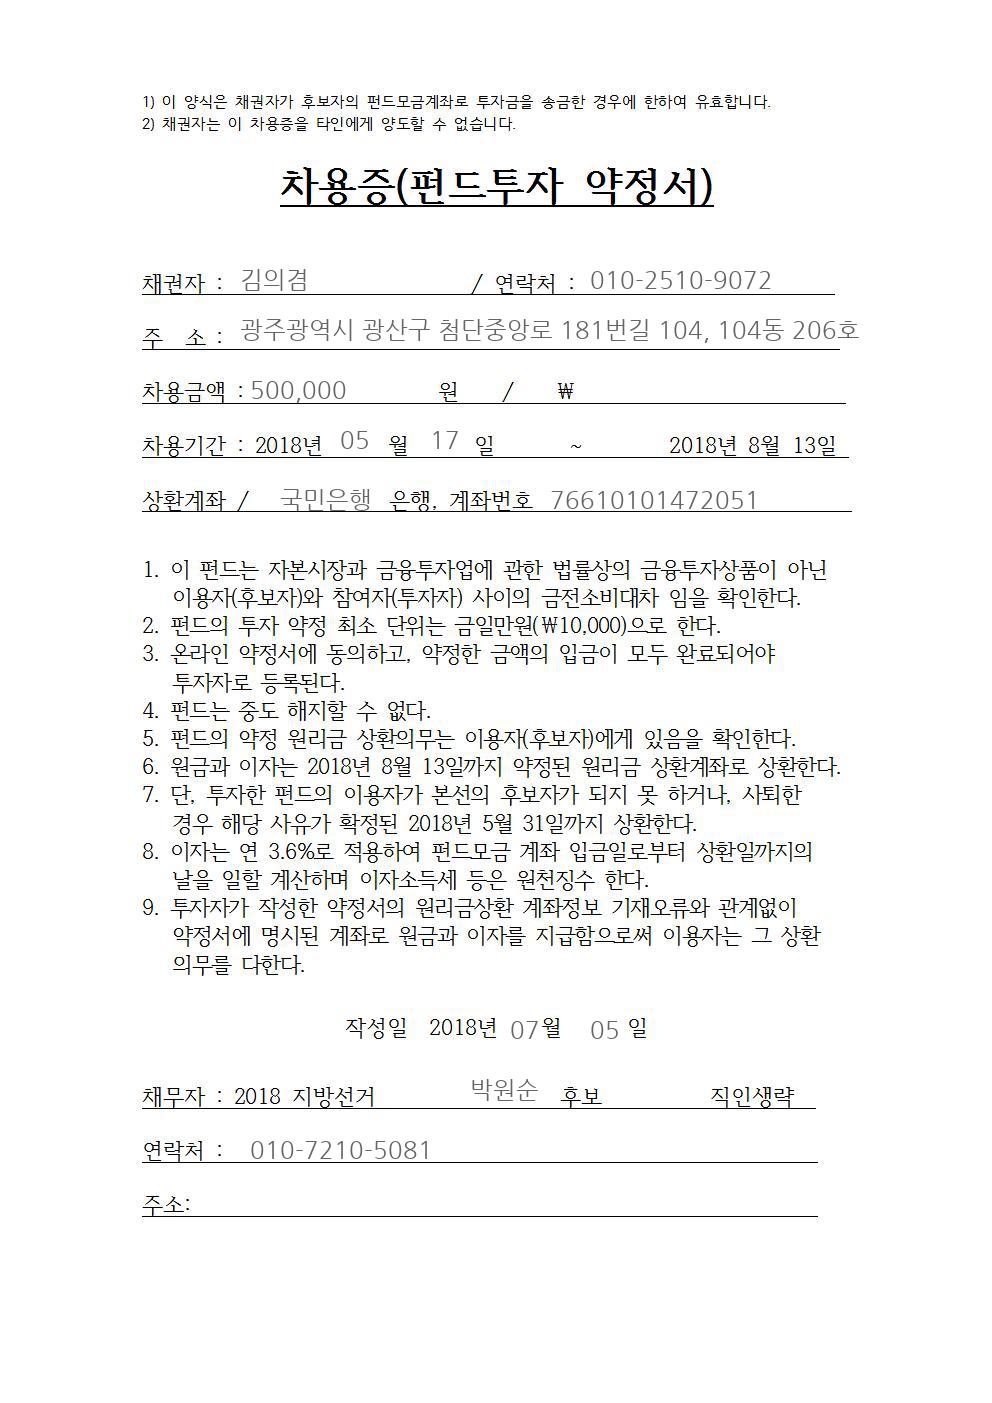 1) 이 양식은 채권자가 후보자의 펀드모금계좌로 투자금을 송금한 경우에 한하여 유효합니다.
2) 채권자는 이 차용증을 타인에게 양도할 수 없습니다.
차용증(펀드투자 약정서)
채권자 : 김의겸 / 연락처 : 010-2510-9072
주 소 : 광주광역시 광산구 첨단중앙로 181번길 104, 104동 206호
차용금액 : 500,000 원 / ₩
차용기간 : 2018년 05 월 17 일 ~ 2018년 8월 13일
상환계좌 / 국민은행 은행, 계좌번호 76610101472051
1. 이 펀드는 자본시장과 금융투자업에 관한 법률상의 금융투자상품이 아닌
이용자(후보자)와 참여자(투자자) 사이의 금전소비대차 임을 확인한다.
2. 펀드의 투자 약정 최소 단위는 금일만원(₩10,000)으로 한다.
3. 온라인 약정서에 동의하고, 약정한 금액의 입금이 모두 완료되어야
투자자로 등록된다.
4. 펀드는 중도 해지할 수 없다.
5. 펀드의 약정 원리금 상환의무는 이용자(후보자)에게 있음을 확인한다.
6. 원금과 이자는 2018년 8월 13일까지 약정된 원리금 상환계좌로 상환한다.
7. 단, 투자한 펀드의 이용자가 본선의 후보자가 되지 못 하거나, 사퇴한
경우 해당 사유가 확정된 2018년 5월 31일까지 상환한다.
8. 이자는 연 3.6%로 적용하여 펀드모금 계좌 입금일로부터 상환일까지의
날을 일할 계산하며 이자소득세 등은 원천징수 한다.
9. 투자자가 작성한 약정서의 원리금상환 계좌정보 기재오류와 관계없이
약정서에 명시된 계좌로 원금과 이자를 지급함으로써 이용자는 그 상환
의무를 다한다.
작성일 2018년 07월 05 일
채무자 : 2018 지방선거 박원순 후보 직인생략
연락처 : 010-7210-5081
주소: